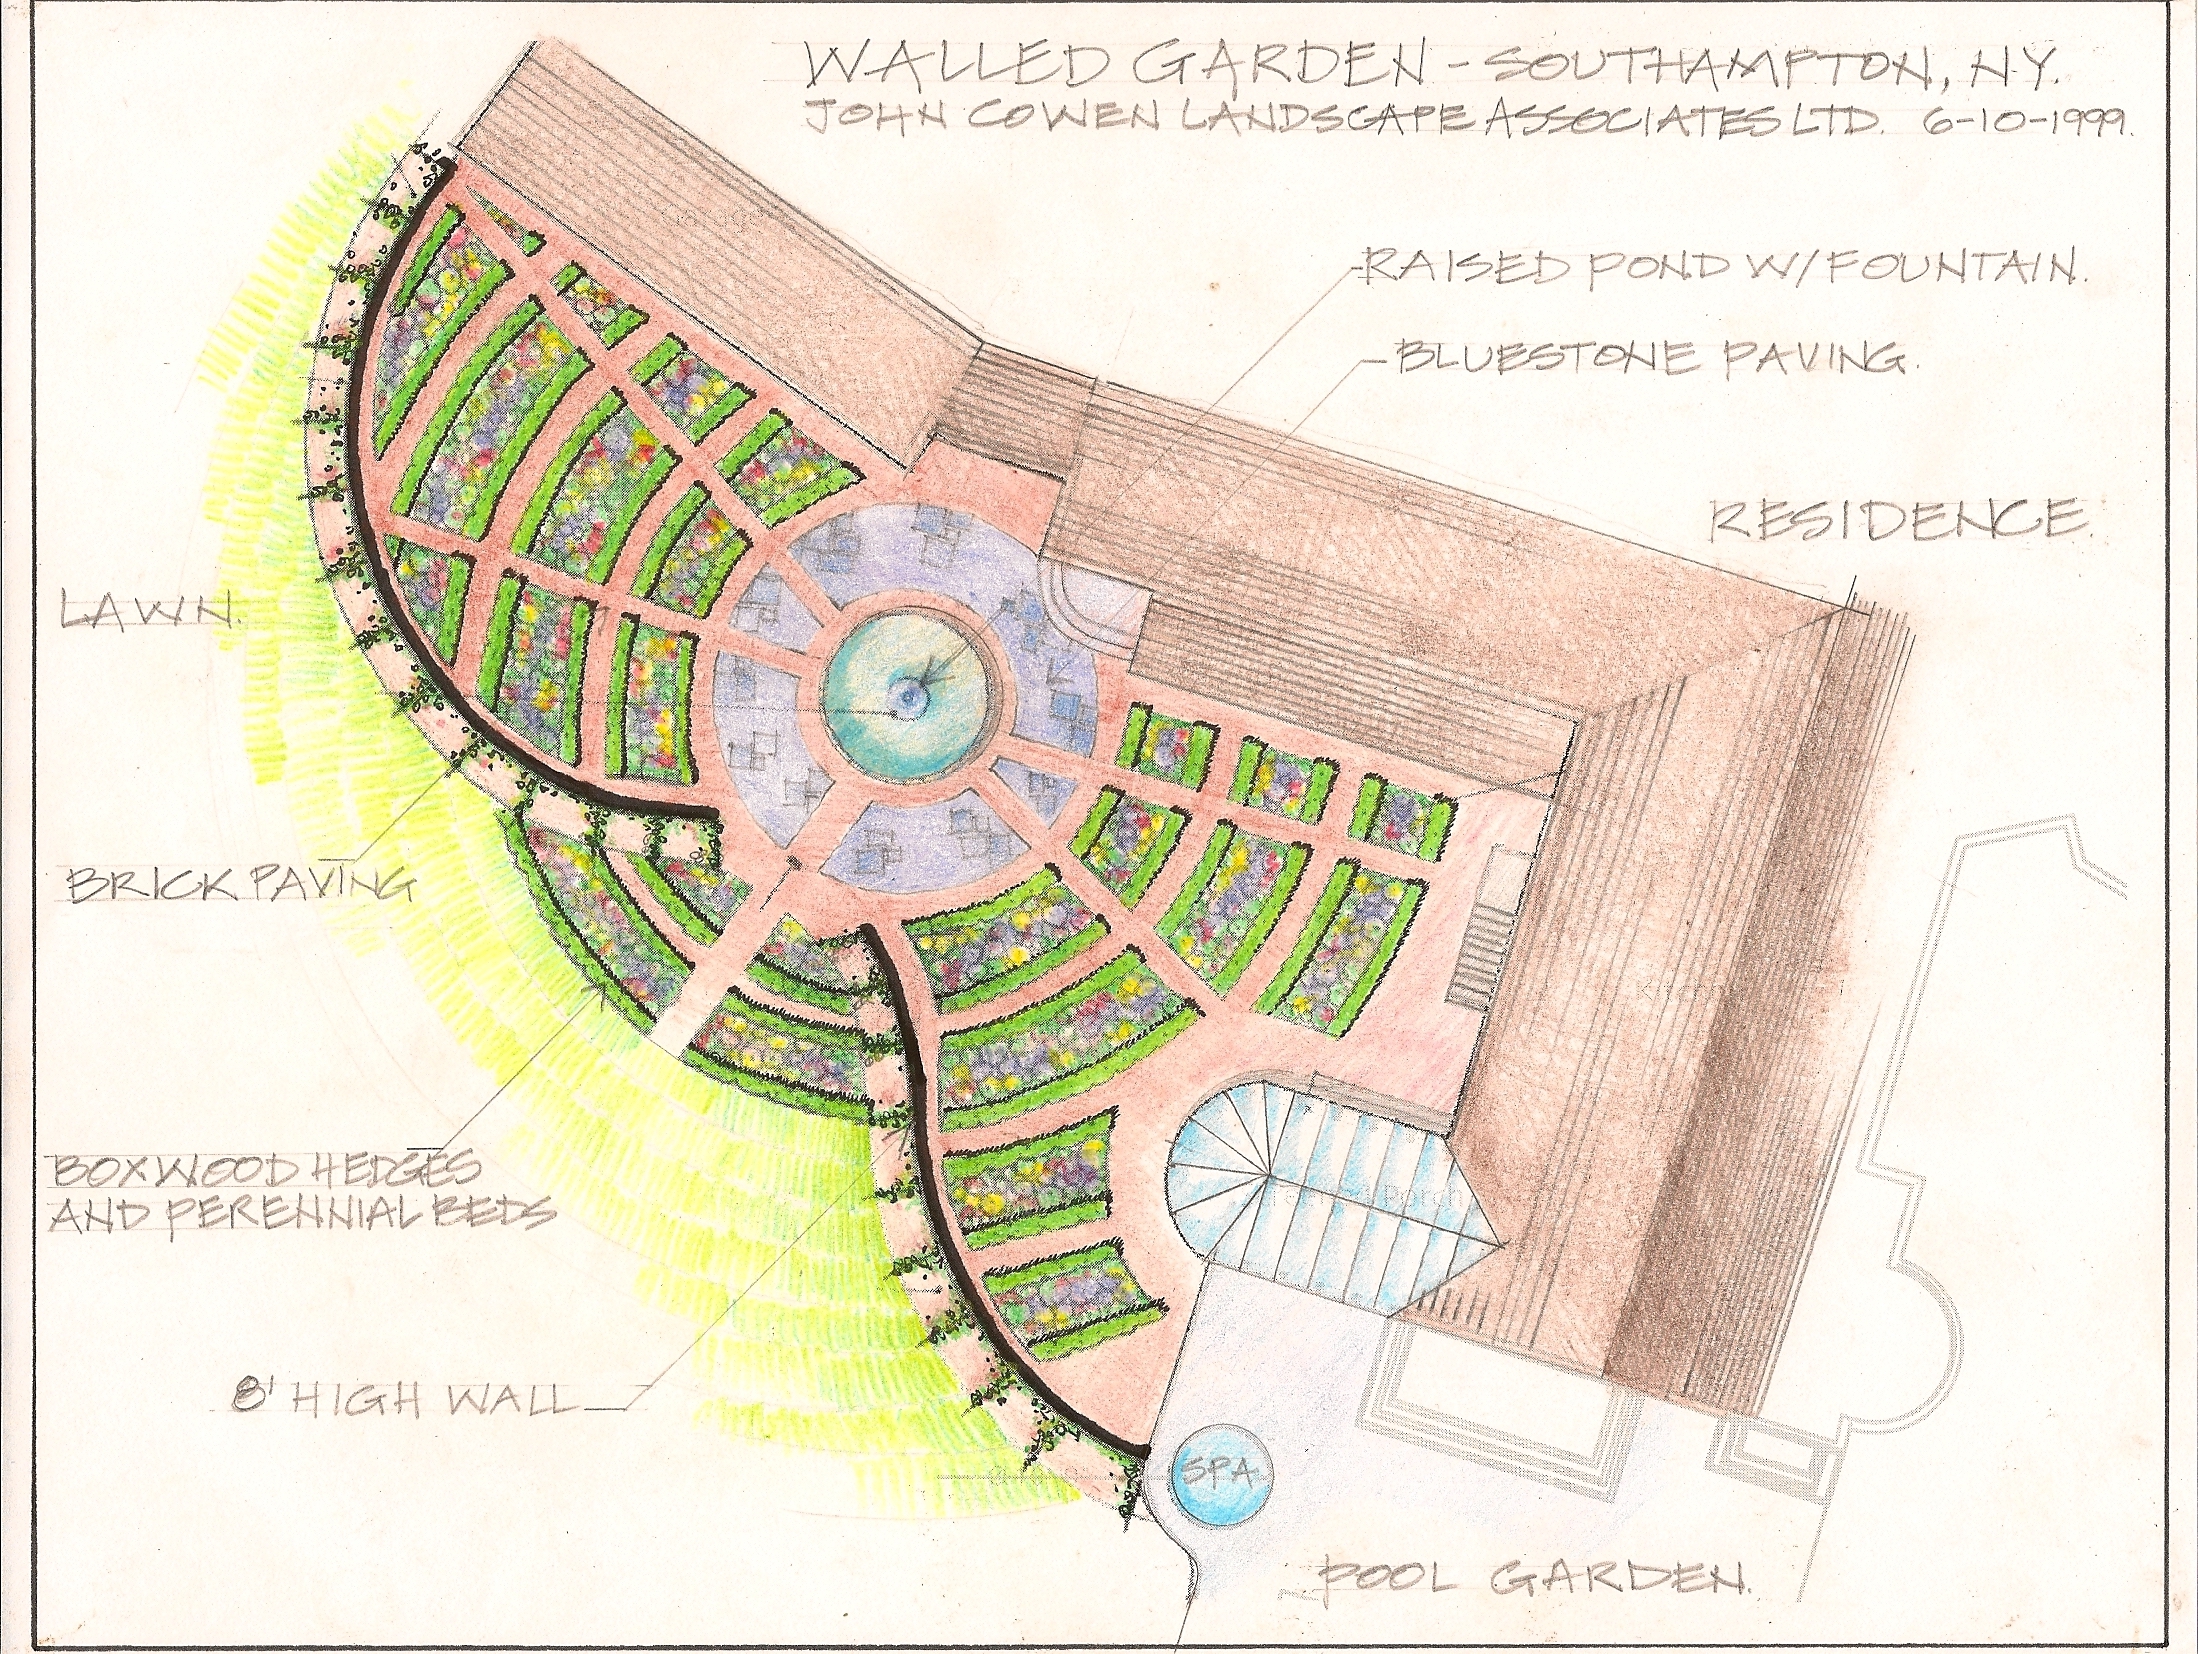 WALLED GARDEN - SOUTHAMPTON, N.Y.
JOHN COWEN LANDSCAPE ASSOCIATES LTD. 6-10-1999.
Garage
RAISED POND W/FOUNTAIN.
BLUESTONE PAVING.
RESIDENCE.
LAWN.
BRICK PAVING
BOXWOOD HEDGES
AND PERENNIAL BEDS
Porch
8' HIGH WALL
SPA
POOL GARDEN.